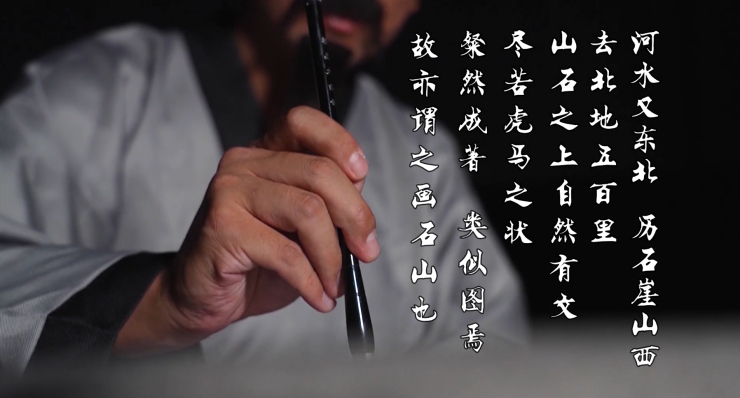 河水又东北 历石崖山西
去北地五百里
山石之上自然有文
尽若虎马之状
粲然成著 类似图焉
故亦谓之画石山也